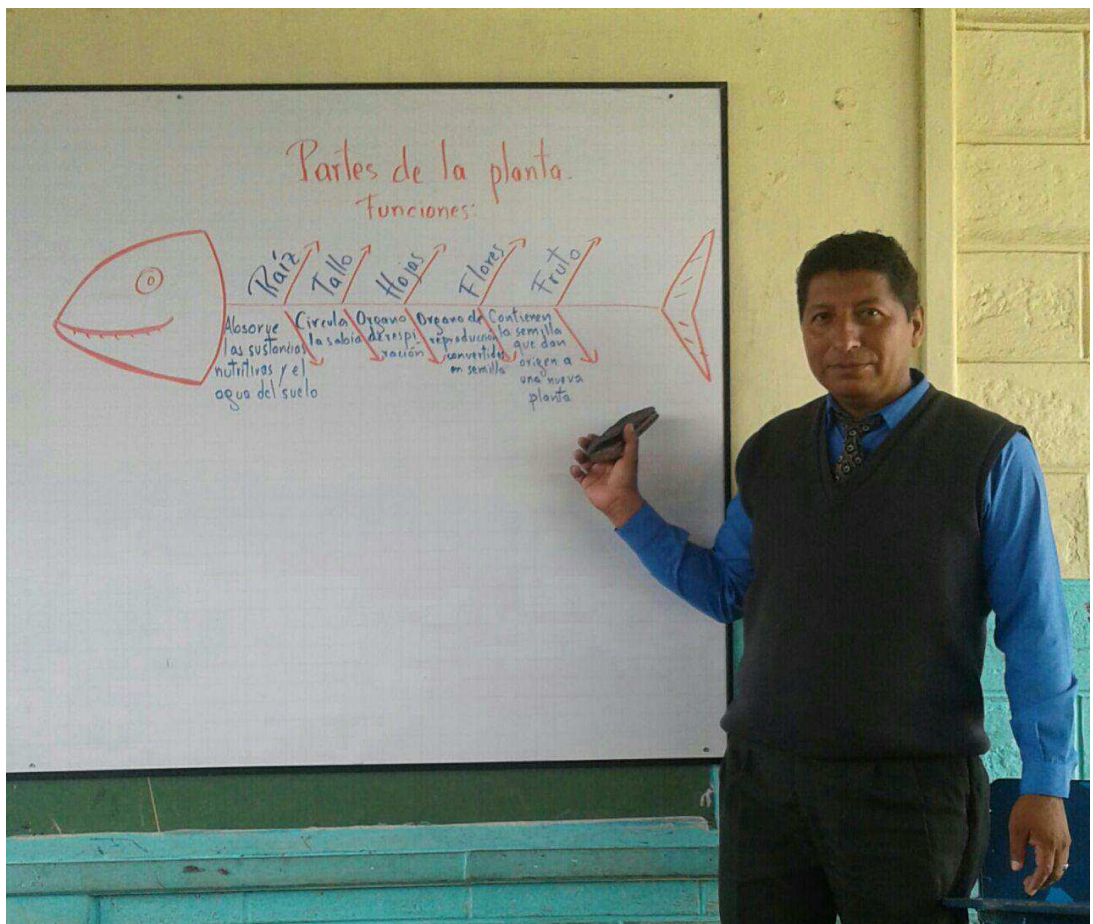 Partes de la planta.
Funciones:
Raíz
Tallo
Hojas
Flores
Fruto
Absorve
las sustancias
nutritivas y el
agua del suelo
Circula
la sabia
Organo
de respi
ración
Organo de
reproducción
convertidas
en semilla
Contienen
la semilla
que dan
origen a
una nueva
planta